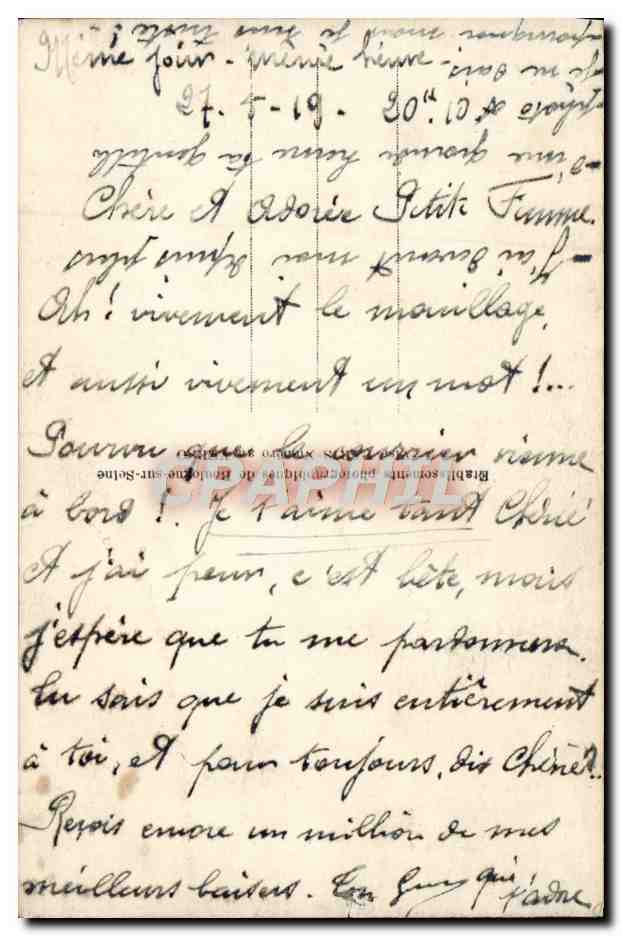 Même jour - même heure -
27-5-19. 20h10
Chère et Adorée Petite Femme.
Ah! vivement le mouillage,
et aussi vivement un mot!...
Pourvu que le courrier vienne
à bord! Je t'aime tant Chérie
et j'ai peur, c'est bête, mais
j'espère que tu me pardonnera.
Tu sais que je suis entièrement
à toi, et pour toujours, dis Chérie?..
Reçois encore un million de mes
meilleurs baisers. Ton Guy qui
t'adore
- J'ai devant moi depuis plus
d'une grande heure ta gentille
photo et
je ne sais
pourquoi mais je suis triste!
Etablissements photographiques de Boulogne-sur-Seine
CPAPHIL